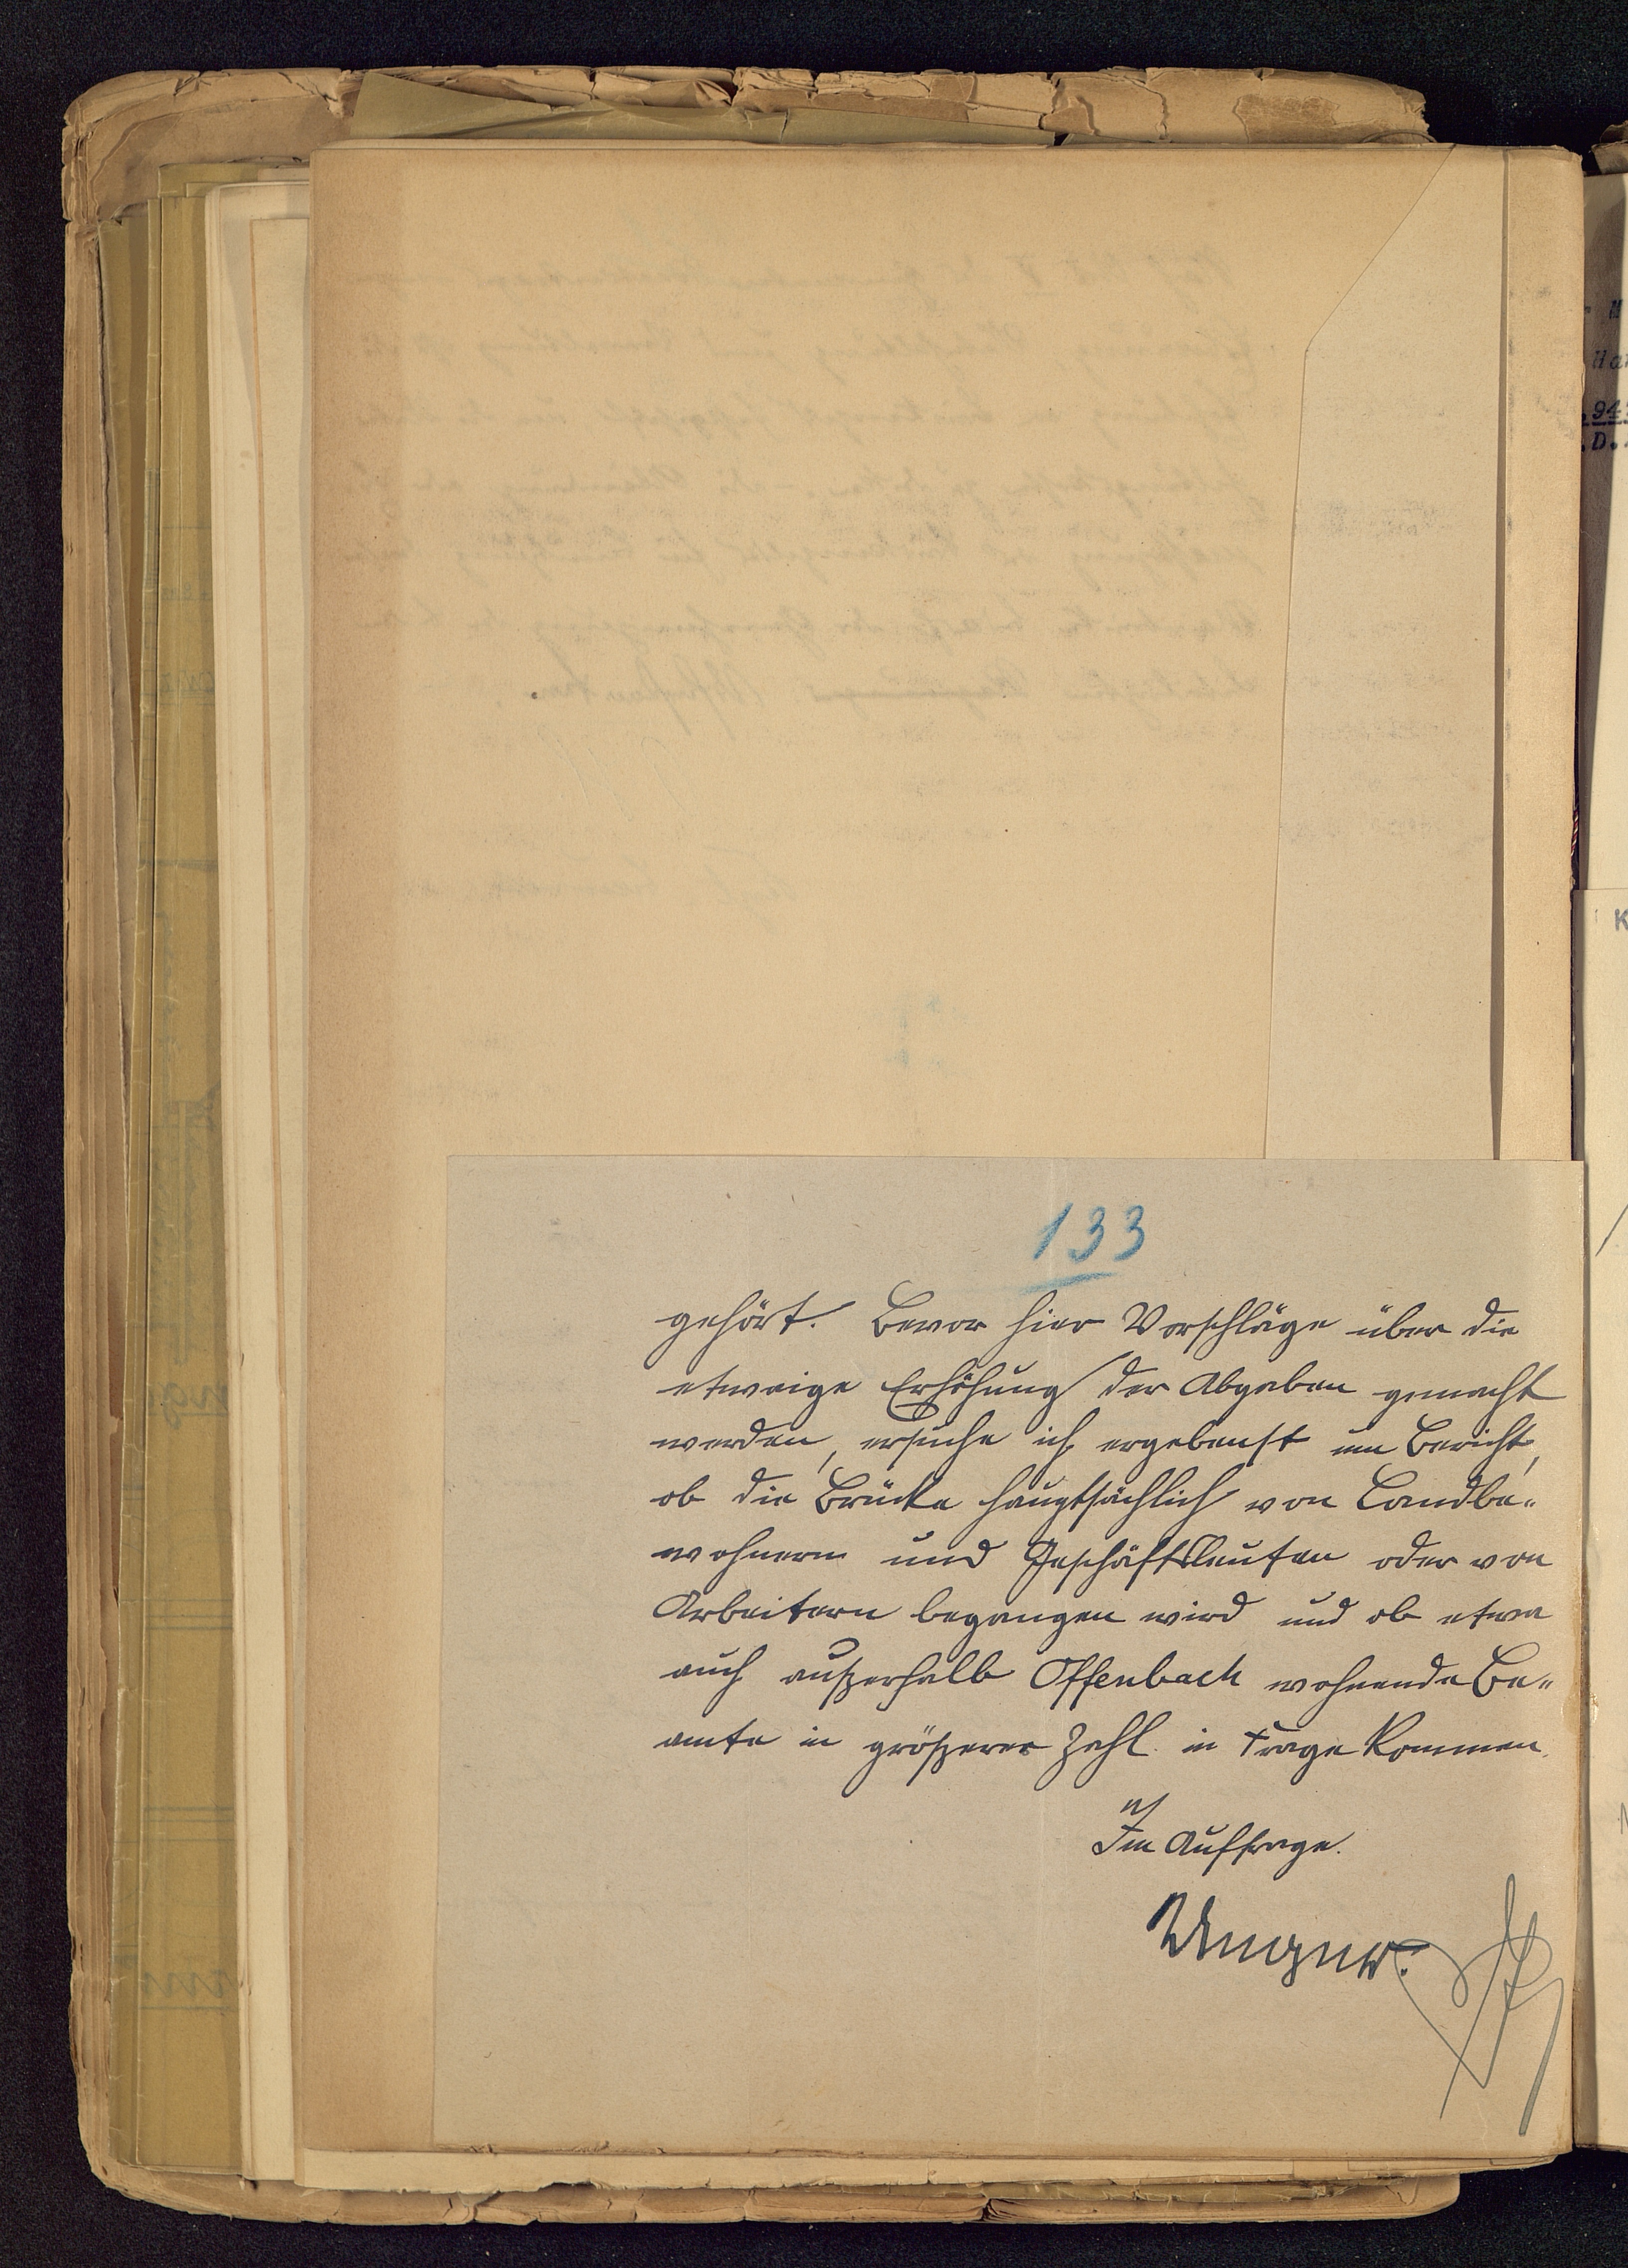 133
gehört. Bevor hier Vorschläge über die
etwaige Erhöhung der Abgaben gemacht
werden, ersuche ich ergebenst um Bericht,
ob die Brücke hauptsächlich von Landbe„
wohnern und Geschäftsleuten oder von
Arbeitern begangen wird und ob etwa
auch außerhalb Offenbach wohnende Be„
amte in größerer Zahl in Frage kommen.
Im Auftrage.